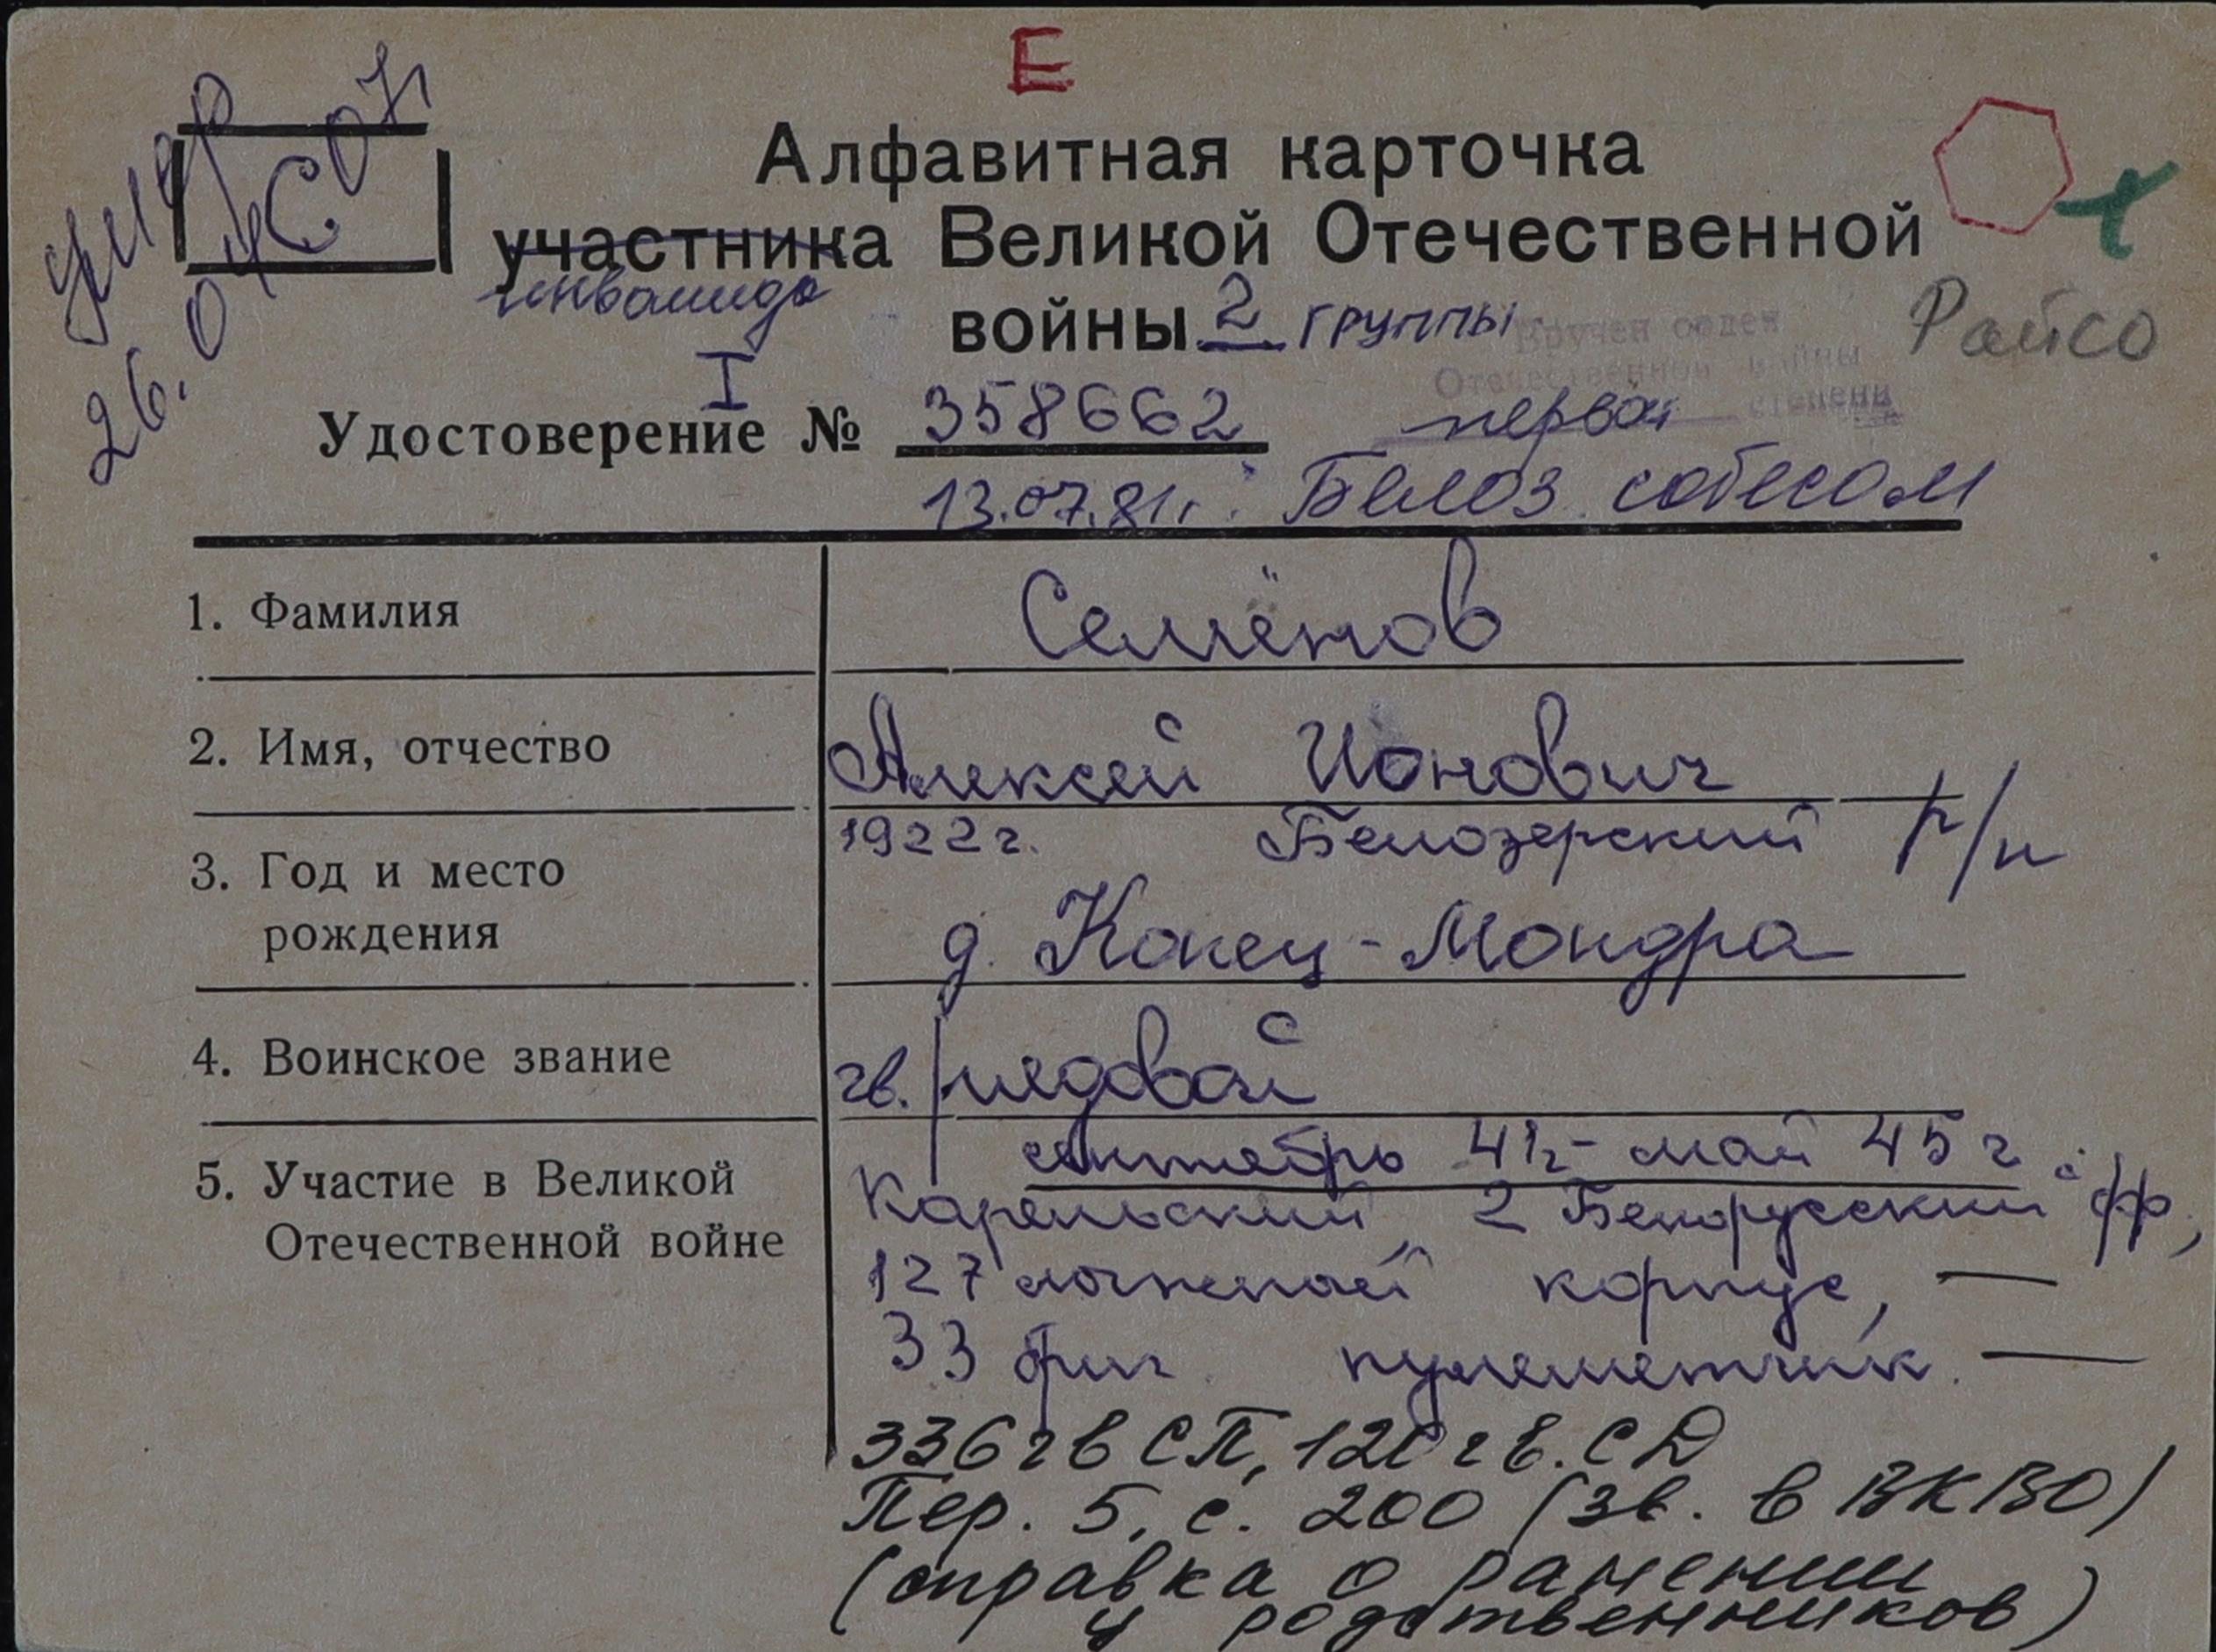 Е
умер
26.04
С 07г
Алфавитная карточка
участника Великой Отечественной
инвалида
войны 2 группы
Вручен орден
Отечественной войны
первой степени
Райсо
Удостоверение № I 358662
13.07.81г. Белоз. собесом
1. Фамилия Семёнов
2. Имя, отчество Алексей Ионович
3. Год и место рождения 1922г. Белозерский р/н
д. Конец-Мондра
4. Воинское звание гв. рядовой
5. Участие в Великой Отечественной войне сентябрь 41г - май 45г.
Карельский, 2 Белорусский фр,
127 лыжный корпус, —
33 бриг пулеметчик. —
336 гв СП, 120 гв. СД
Пер. 5, с. 200 (зв. в ВКВО)
(справка о ранении
у родственников)